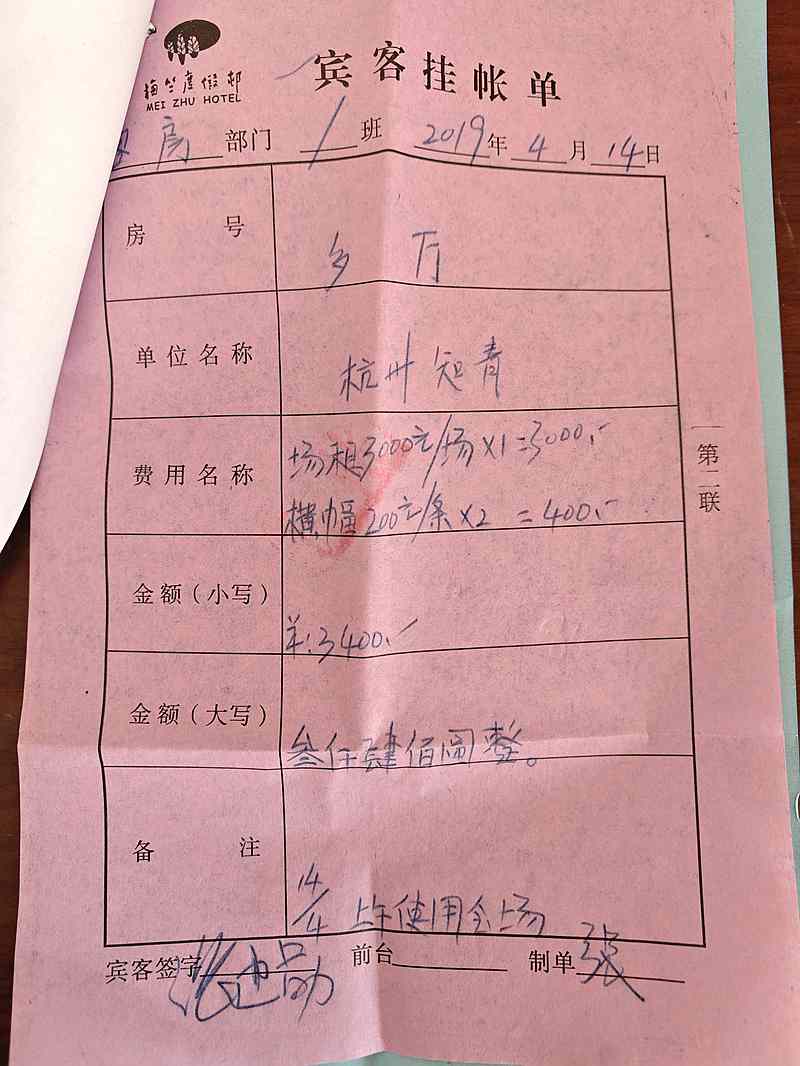 梅竺度假邨
MEI ZHU HOTEL
宾客挂帐单
房 部门 1 班 2019年 4 月 14日
房 号
多 厅
单位名称
杭州知青
费用名称
场租3000元/场×1=3000.-
横幅200元/条×2 =400.-
金额(小写)
¥:3400.-
金额(大写)
叁仟肆佰圆整。
备 注
14/4 上午使用会场
宾客签字 前台 制单 张
第二联